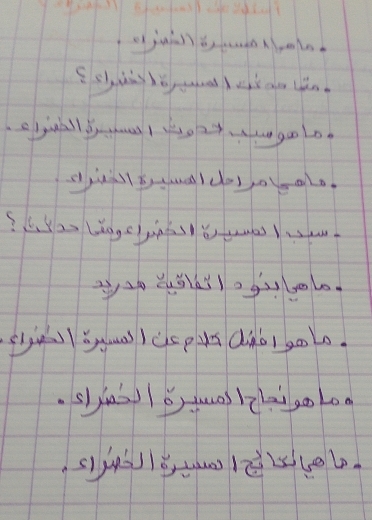 أسئلة عن المسيرة الخضراء؟
. ما هي المسيرة الخضراء.
. متا حدثت المسيرة الخضراء؟
. ما هو سبب حدوث المسيرة الخضراء.
. ما هي مراحل المسيرة الخضراء.
. سبب المسيرة الخضراء ومتا حدثت؟
. ما هي بنود اتفاقية مدريد
. ما هو افضل كلام عن المسيرة الخضراء.
. وما هو نجاح المسيرة الخضراء.
. ما هي نتائج المسيرة الخضراء.